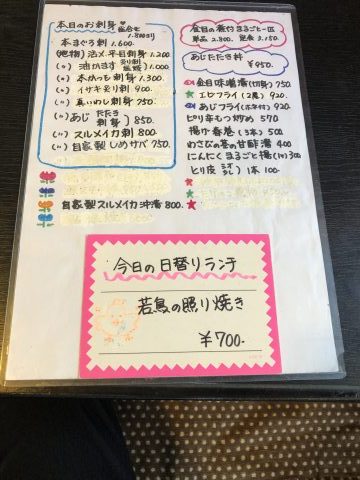 本日のお刺身
盛合せ
1.800より
本まぐろ刺 1.600.
(地物)活〆平目刺身 1.200
(〃) 油かます 炙り刺 塩焼 1.000
(〃) 本かつお刺身 1.300
(〃) イサキ炙り刺 900
(〃) 真いわし刺身 750
(〃) あじ たたき 刺身 850
(〃) スルメイカ刺 800
(〃) 自家製しめサバ 750
自家製スルメイカ沖漬 800
金目の煮付 まるごと一匹
単品 2.800. 定食 3.150.
あじたたき丼
¥950.
金目味噌漬(切身) 750
エビフライ(2尾) 920
あじフライ(ホネ付) 920
ピリ辛もつ炒め 570
揚げ春巻(3本) 500
わさびの茎の甘酢漬 400
にんにくまるごと揚(1ケ) 300
とり皮 1本 100
今日の日替りランチ
若鳥の照り焼き
¥700.